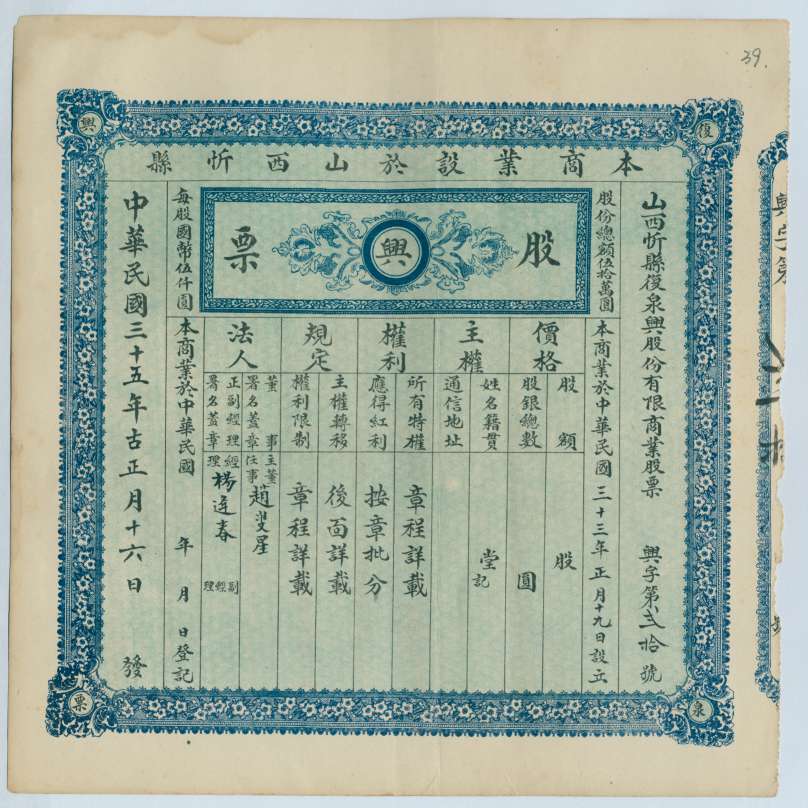 39.
復
興
泉
票
本商業設於山西忻縣
山西忻縣復泉興股份有限商業股票 興字第弍拾號
股份總額伍拾萬圓
股 興 票
每股國幣伍仟圓
本商業於中華民國三十三年正月十九日設立
價格
股額 股
股銀總數 圓
主權
姓名籍貫 堂記
通信地址
權利
所有特權 章程詳載
應得紅利 按章批分
規定
主權轉移 後面詳載
權利限制 章程詳載
法人
董事署名蓋章 主任董事 趙
星
正副經理署名蓋章 經理 楊
春
副經理
本商業於中華民國 年 月 日登記
中華民國三十五年古正月十六日 發
興字第
拾